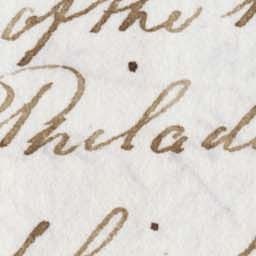 of the
Philad